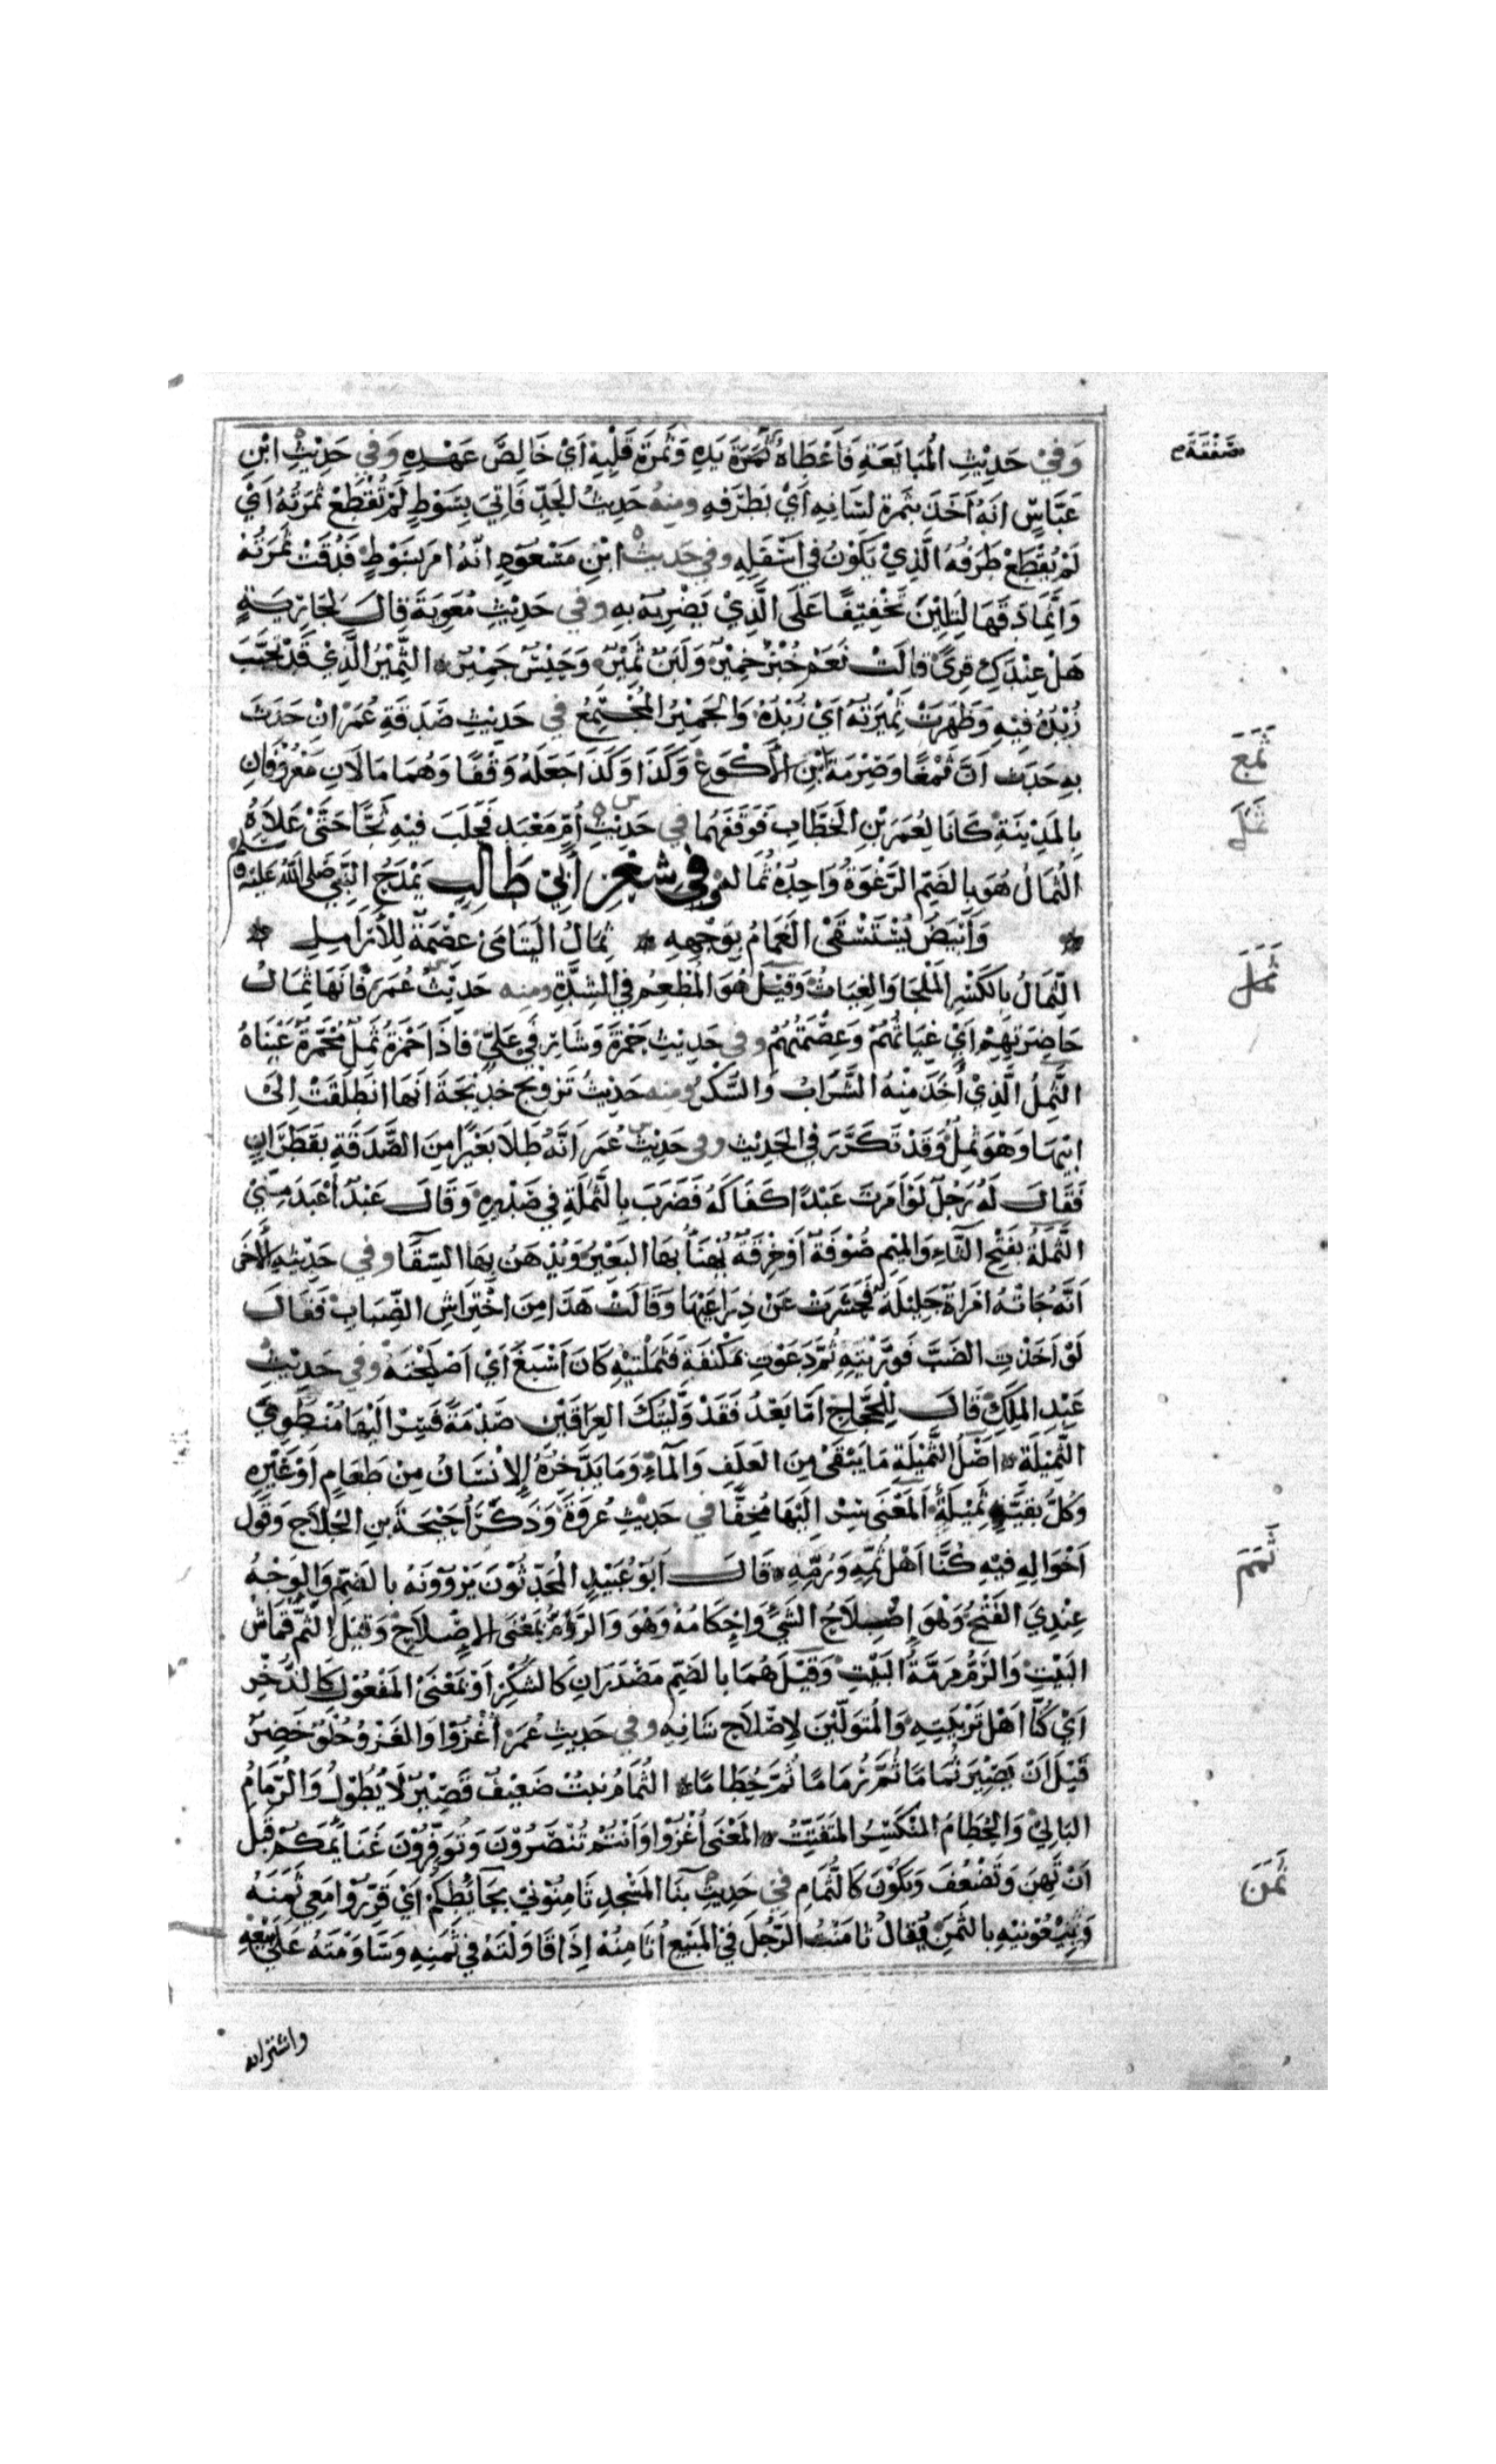 وَفِيْ حَدِيْثِ الْمُبَايَعَةِ فَأَعْطَاهُ ثَمَرَةَ يَدِهِ وَثَمَرَةَ قَلْبِهِ اَيْ خَالِصَ عَهْدِهِ وَفِي حَدِيْثِ ابْنِ
صَفْقَةَ
عَبَّاسٍ انَهُ اَخَذَ بِثَمرةِ لِسَانِهِ اَيْ بَطَرَفِهِ ومِنهُ حَدِيثُ الحَدِّ فَاتِيَ بِسَوْطٍ لَمْ تُقْطَعْ ثَمَرَتُهُ اَيْ
لَمْ يُقْطَعْ طَرَفُهُ الَّذِيْ يَكُوْنُ فِي اَسْفَلِهِ وفي حَدِيث ابْنِ مَسْعُوْدٍ انّهُ امَر بِسَوْطٍ فَدُقَّتْ ثَمَرَتُهُ
وَاِنَّمَا دَقَّهَا لِتَلِيْنَ تَخْفِيْفًا عَلَى الَّذِيْ يَضْرِبُهُ بِهِ وفي حَدِيْثِ مُعٰوِيَةَ قَالَ لِجَارِيَةٍ
هَلْ عِنْدَكِ قِرًى قَالَتْ نَعَمْ خُبْزٌ خَمِيْرٌ وَلَبَنٌ ثَمِيْرٌ وَحَيْسٌ جَمِيْرٌ الثَّمِيْرُ الَّذِيْ قَدْ تَحَبَّبَ
زُبْدُهُ فِيْهِ وَظَهَرَتْ ثَمِيْرَتُهُ اَيْ زُبْدُهُ وَالجَمِيْرُ المُجْتَمِعُ في حَدِيْثِ صَدَقَةِ عُمَرَ اِنْ حَدَثَ
ثَمَغَ
بِهِ حَدَث اَنَّ ثَمْغًا وَصِرْمَةَ ابْنِ الاَكْوَعِ وَكَذَا وَكَذَا جَعَلَهُ وَقْفًا وَهُمَا مَالَانِ مَعْرُوْفَانِ
بِالمَدِيْنَةِ كَانَا لِعُمَرَ بْنِ الخَطَّابِ فَوَقَفَهُمَا في حَدِيْثِ اُمِّ مَعْبَدٍ فَحَلَبَ فِيْهِ ثَجًّا حَتّٰى عَلَاهُ
ثَمَلَ
الثُمَالُ هُوَ بِالضَمِّ الرَّغْوَةُ وَاحِدُهُ ثُمَالَةٌ وفي شِعْرِ أَبِيْ طَالِبٍ يَمْدَحُ النَّبِيَّ صَلى اللهُ عَلَيْهِ وسلم
وَأَبْيَضَ يُسْتَسْقَى الغَمَامُ بِوَجْهِهِ ثِمَالُ اليَتَامَى عِصْمَةٌ لِلْأَرَامِلِ
ثَمَلَ
الثِّمَالُ بِالكَسْرِ المَلْجَا وَالغِيَاثُ وَقِيْلَ هُوَ المُطْعِمُ فِي الشِدَّةِ ومنه حَدِيْثُ عُمَرَ فَانَهَا ثِمَالُ
حَاضِرَتِهِمْ اَيْ غِيَاثُهُمْ وَعِصْمَتُهُمْ وفي حَدِيْثِ حَمْزَةَ وَشَارِفَيْ عَلِيٍّ فَاِذَا حَمْزَةُ ثَمِلٌ مُحْمَرَّةٌ عَيْنَاهُ
الثَّمِلُ الَّذِيْ اَخَذَ مِنْهُ الشَّرَابُ وَالسُّكْرُ ومنه حَدِيْثُ تَزْوِيْجِ خَدِيْجَةَ اَنَهَا انْطَلَقَتْ اِلَى
ابِيْهَا وَهُوَ ثَمِلٌ وَقَدْ تَكَرَّرَ فِي الحَدِيْثِ وفي حَدِيْثِ عُمَرَ اَنَّهُ طَلَا بَعِيْرًا مِنَ الصَّدَقَةِ بِقَطِرَانٍ
فَقَالَ لَهُ رَجُلٌ لَوْ اَمَرْتَ عَبْدًا كَفَاكَهُ فَضَرَبَ بِالثَّمَلَةِ فِي صَدْرِهِ وَقَالَ عَبْدٌ اَعْبَدُ مِنِّيْ
الثَّمَلَةُ بِفَتْحِ الثَّاءِ وَالمِيْمِ صُوْفَةٌ اَوْ خِرْقَةٌ يُهْنَاُ بِهَا البَعِيْرُ وَيُدْهَنُ بِهَا السِّقَا وفي حَدِيْثِهِ الأخر
اَنَّهُ جَاءَتْهُ امْرَاَةٌ جَلِيْلَةٌ فَحَسَرَتْ عَنْ ذِرَاعَيْهَا وَقَالَتْ هَذَا مِنَ احْتِرَاشِ الضِّبَابِ فَقَالَ
لَوْ اَخَذْتِ الضَبَّ فَوَرَّيْتِهِ ثُمَّ دَعَوْتِ بمِكْنَفَةٍ فَثَمَلْتِيْهِ كَانَ اَشْبَعَ اَيْ اَصْلَحْتَهُ وفي حَدِيْثِ
عَبْدِ المَلِكِ قَالَ لِلْحَجَّاجِ اَمَّا بَعْدُ فَقَدْ وَلَّيْتُكَ العِرَاقَيْنِ صَدْمَةً فَسِرْ اِلَيْهَا مُنْطَوِيَ
الثَّمِيْلَةِ اَصْلُ الثَّمِيْلَةِ مَا يَبْقَى مِنَ العَلَفِ وَالمَاءِ وَمَا يَدَّخِرُهُ الاِنْسَانُ مِنْ طَعَامٍ اَوْ غَيْرِهِ
وَكُلُّ بَقِيَّةٍ ثَمِيْلَةٌ اَلمَعْنَى سِرْ اِلَيْهَا مُخِفًّا في حَدِيْثِ عُرْوَةَ وَذَكَرَ اُحَيْحَةَ بنِ الجُلَاحِ وَقَوْلَ
ثَمَمَ
اَخْوَالِهِ فِيْهِ كُنَّا اَهْلَ ثُمِّهِ وَرُمِّهِ قَالَ اَبُوْ عُبَيْدٍ المُحَدِّثُوْنَ يَرْوُوْنَهُ بِالضَمِّ وَالوَجْهُ
عِنْدِيَ الفَتْحُ وَهُوَ اِصْلَاحُ الشَيْءِ وَاِحْكَامُهُ وَهُوَ وَالرَّمُّ بِمَعْنَى الاِصْلَاحِ وَقِيْلَ الثُّمُّ قُمَاشُ
البَيْتِ وَالرُمُّ مَرَمَّةُ البَيْتِ وَقِيْلَ هُمَا بِالضَمِّ مَصْدَرَانِ كَالشُكْرِ اَوْ بِمَعْنَى المَفْعُوْلِ كَالذُخْرِ
اَيْ كُنَّا اَهْلَ تَرْبِيَتِهِ وَالمُتَوَلِّيْنَ لِاِصْلَاحِ شَانِهِ وفي حَدِيثِ عُمَرَ اُغْزُوْا وَالغَزْوُ حُلْوٌ خَضِرٌ
قَبْلَ اَنْ يَصِيْرَ ثُمَامًا ثُمَّ رُمَامًا ثُمَّ حُطَامًا الثُمَامُ نبْتٌ ضَعِيْفٌ قَصِيْرٌ لَا يَطُوْلُ وَالرُّمَامُ
البَالِيْ وَالحُطَامُ المُنْكَسِرُ المُتَفَتِّتُ المَعْنَى اُغْزُوْا وَاَنْتُمْ تُنْصَرُوْنَ وَتُوَفِّرُوْنَ غَنَائِمَكُمْ قَبْلَ
اَنْ تَهِنَ وَتَضْعُفَ وَيَكُوْنَ كَالثُّمَامِ فِيْ حَدِيْثِ بِنَا المَسْجِدِ ثَامِنُوْنِيْ بِحَائِطِكُمْ اَيْ قَرِّرُوْا مَعِيْ ثَمَنَهُ
ثَمَنَ
وَبِيْعُوْنِيْهِ بِالثَمَنِ يُقَالُ ثَامَنْتُ الرَّجُلَ فِي المَبِيْعِ اُثَامِنُهُ اِذَا قَاوَلْتَهُ فِي ثَمَنِهِ وَسَاوَمْتَهُ عَلَى بَيْعِهِ
واشترائه